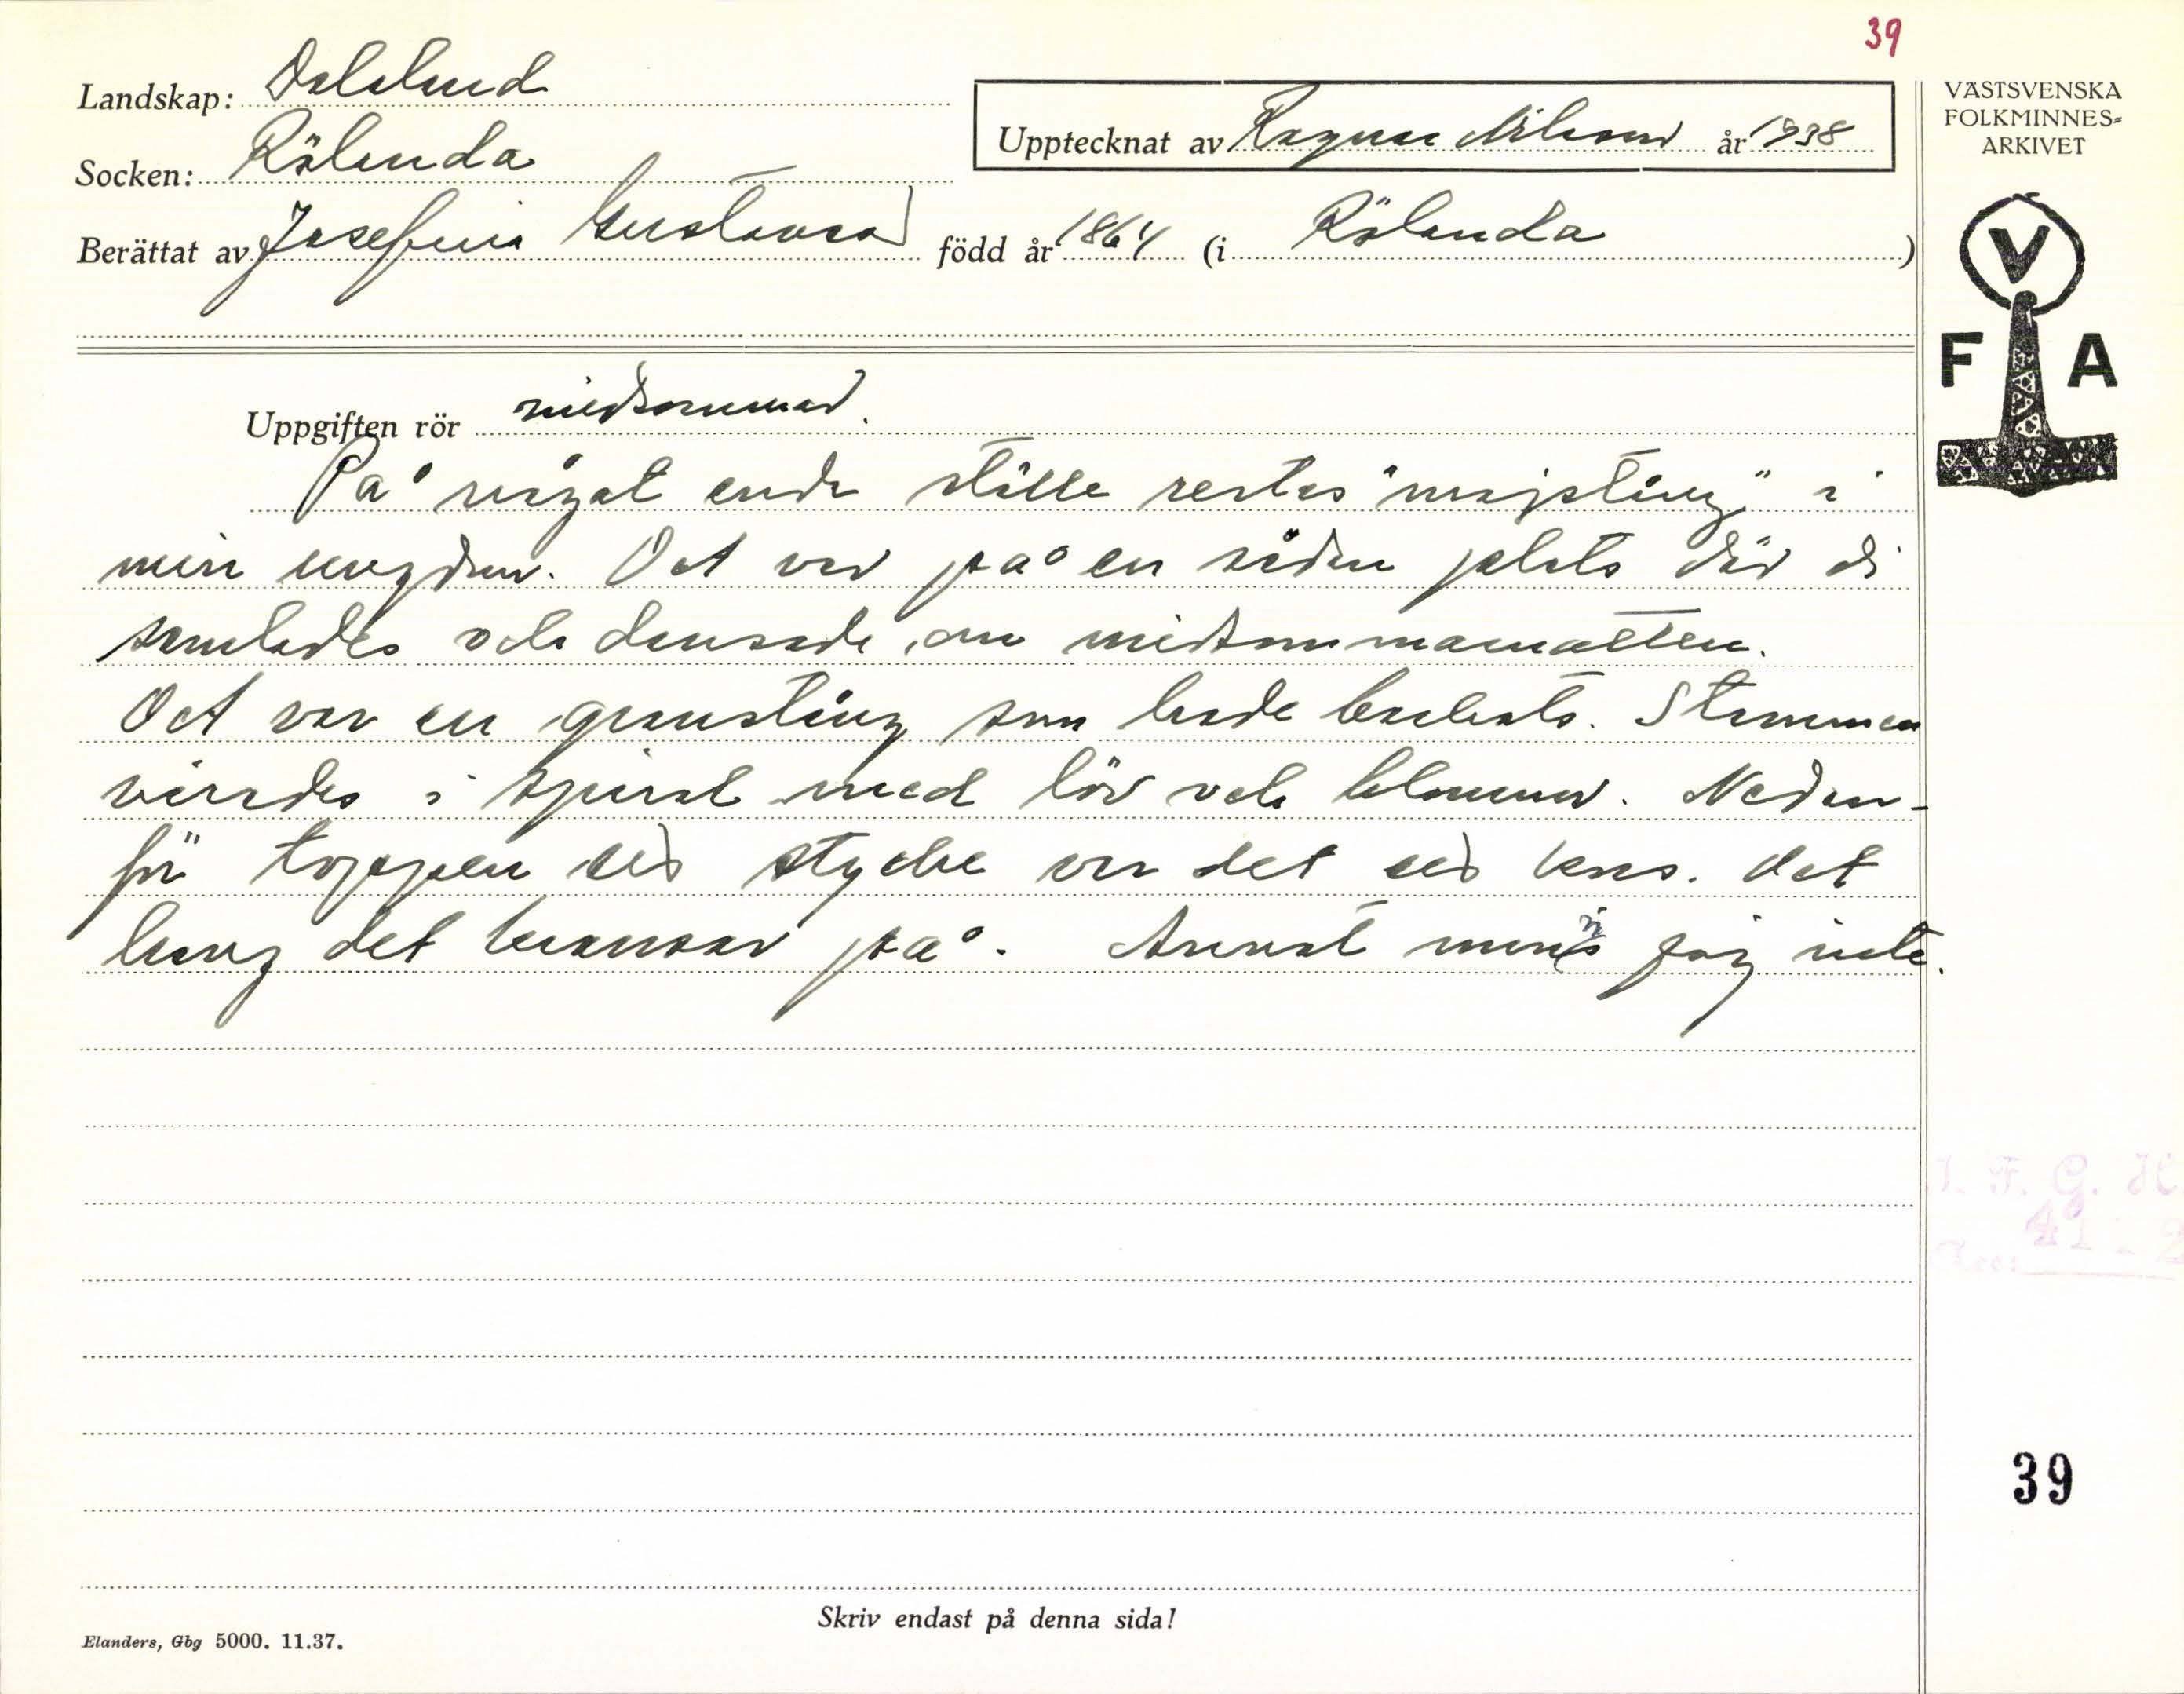 39
Landskap: Dalsland
Socken: Rölanda
Upptecknat av Ragnar Nilsson år 1938
Berättat av Josefina Gustavsson född år 1864 (i Rölanda )
VÄSTSVENSKA
FOLKMINNES-
ARKIVET
V
F A
Uppgiften rör midsommar.
På något enda ställe restes "majstång" i
min ungdom. Det var på en sådan plats där di
samlades och dansade om midsommarnatten.
Det var en granstång som hade barkats. Stammen
virades i spiral med löv och blommor. Neden-
för toppen ett stycke var det ett kors. Det
hang det kransar på. Annat minns jag inte.
39
Skriv endast på denna sida!
Elanders, Gbg 5000. 11.37.